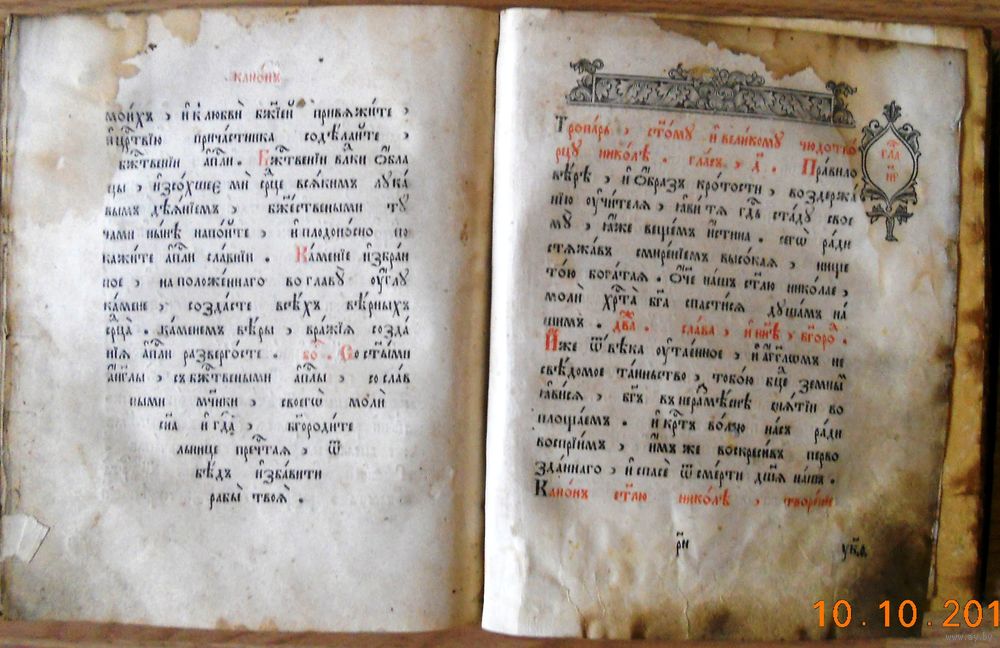 канѡ́нъ
мои́хъ , и҆ к̾ любвѝ бж҃їей привѧжи́те ,
и҆ црⷭ҇твїю прича́стника содѣ́лайте ,
бж҃твенїи а҆пⷭ҇ли . Бж҃твенїи влⷣки ѻ҆́бла
цы , и҆зсо́хшее мѝ срⷣце всѧ́кимъ лꙋка́
вымъ дѣѧ́нїемъ , бжⷭ҇твеными тꙋ́
чами ны́нѣ напо́йте , и҆ плодоно́сно по
кажи́те а҆пⷭ҇ли сла́внїи . Ка́менїе и҆збра́н
ное , на положе́ннаго во главꙋ̀ ѹ҆́глꙋ
ка́мене , созда́сте всѣ́хъ вѣ́рныхъ
срⷣца̀ . ка́менемъ вѣ́ры , вра́жїѧ созда́
нїѧ а҆пⷭ҇ли разверго́сте . бо҃ . Со ст҃ы́ми
а҆́гг҃лы , съ бжⷭ҇твеными а҆пⷭ҇лы , со сла́в
ными мч҃ики , своегѡ̀ молѝ
сн҃а и҆ гдⷭ҇а , бг҃ороди́те
льнице пречⷭ҇таѧ , ѿ
бѣ́дъ и҆зба́вити
рабы̀ твоѧ̀ .
Тропа́рь , ст҃о́мꙋ и҆ вели́комꙋ чюдотво́
рцꙋ нико́лѣ . гла́съ , д҃ . Пра́вило
вѣ́рѣ , и҆ ѻ҆́бразъ кро́тости , воздержа́
нїю ѹ҆чи́телѧ , ꙗ҆вѝ тѧ гдⷭ҇ь ста́дꙋ свое
мꙋ̀ , ꙗ҆́же веще́мъ и҆́стина . сегѡ̀ ра́ди
стѧжа́въ смире́нїемъ высо́каѧ , нище
то́ю бога́таѧ . Ѻ҆́ч҃е на́шъ ст҃лю нико́лае ,
молѝ хрⷭ҇та̀ бг҃а спасти́сѧ дꙋша́мъ на́
шимъ . два́ . сла́ва , и҆ ны́нѣ , бг҃оро .
И҆́же ѿ вѣ́ка ѹ҆тае́нное , и҆ а҆́гг҃лѡмъ не
свѣ́домое та́иньство , тобо́ю бцⷣе земны́мъ
ꙗ҆ви́сѧ , бг҃ъ в нера́змѣснѣ снѧ́тїи во
площа́емъ . и҆ крⷭ҇тъ во́лею на́съ ра́ди
воспрїи́мъ , и҆́мъ же воскреси́въ перво
зда́ннаго , и҆ спасѐ ѿ сме́рти дш҃а на́шѧ .
Кано́нъ ст҃лю нико́лѣ , творе́нїе
рн҃
10.10.201
www.ay.by